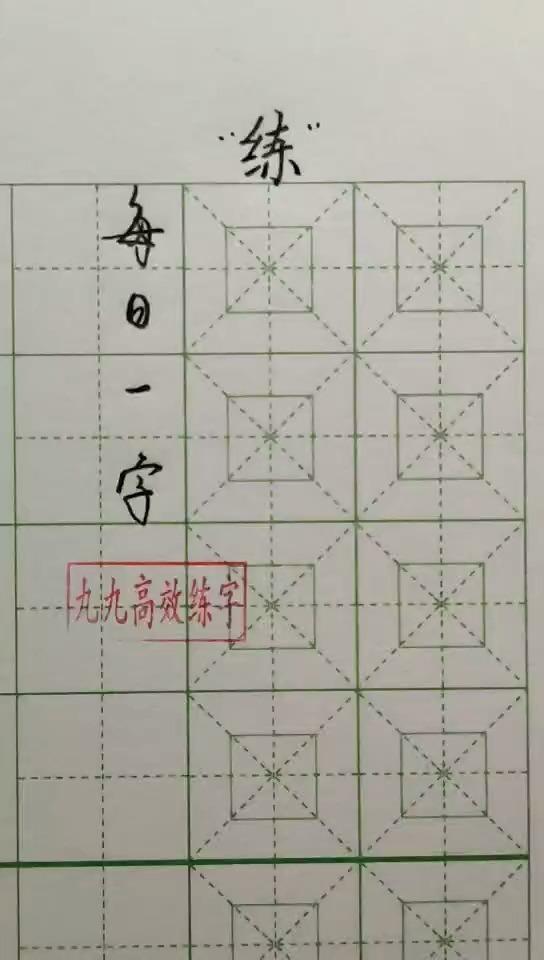 "练"
每日一字
九九高效练字